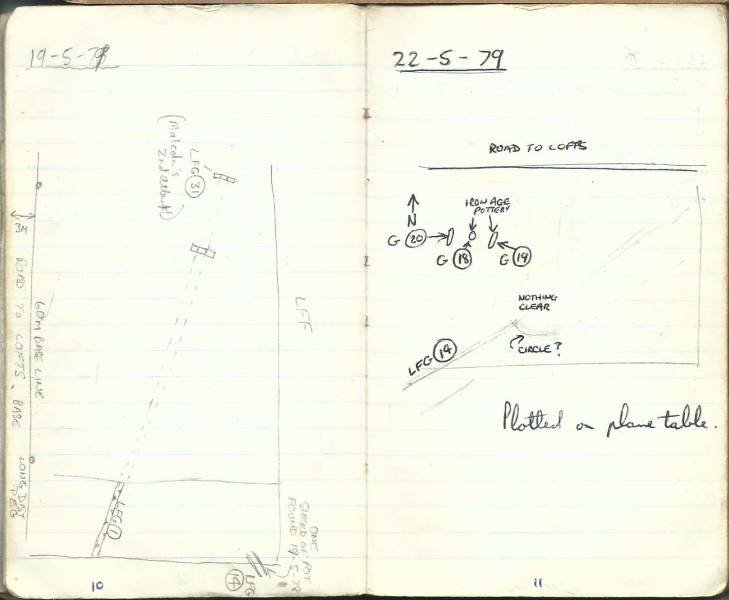 19-5-79
(Malcolm's
2nd attempt)
LFG (31)
LFF
35
ROAD TO LOFTS. BASE LONG DIST
PEG
60M BASE LINE
LFG (1)
ONE
SHERD OF POT
FOUND 19-5-79
LFG
(14)
10
22-5-79
ROAD TO LOFTS
N
IRON AGE
POTTERY
G (20)
G (18)
G (19)
NOTHING
CLEAR
CIRCLE?
LFG (14)
Plotted on plane table.
11